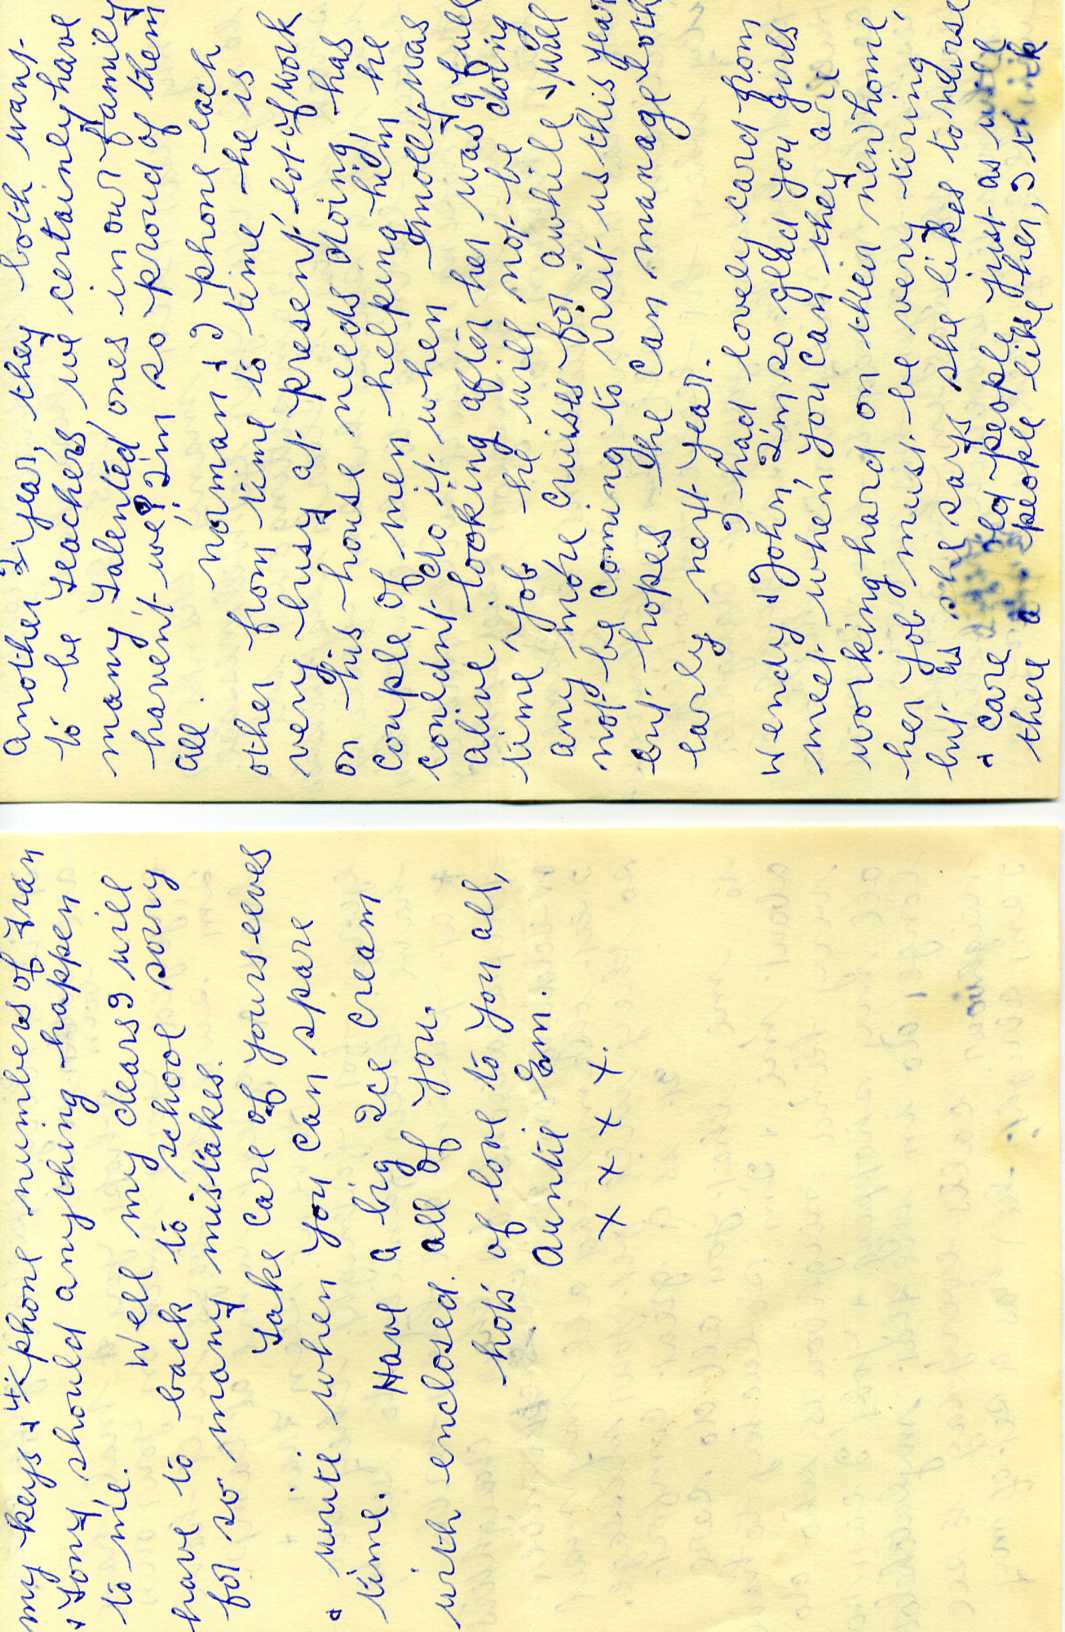 2
another year, they both want
to be teachers, we certainly have
many talented ones in our family
haven't we? I'm so proud of them
all.
norman & I phone each
other from time to time he is
very busy at present, lot of work
on his house needs doing, has
couple of men helping him he
couldn't do it when Molly was
alive looking after her was a full
time job he will not be doing
any more cruises for awhile & will
not be coming to visit us this year
but hopes he can manage it
early next year.
I had lovely card from
Wendy & John I'm so glad you girls
meet when you can they are
working hard on their new home,
her job must be very tiring
but as she says she likes to nurse
& care old people just as well
there a people like her, I think
4
my keys & phone numbers of Fran
& Tony should anything happen
to me.
Well my dears I will
have to back to school sorry
for so many mistakes.
Take care of yourselves
& write when you can spare
time.
Have a big Ice cream
with enclosed all of you.
hots of love to you all,
Auntie Em.
x x x x x.